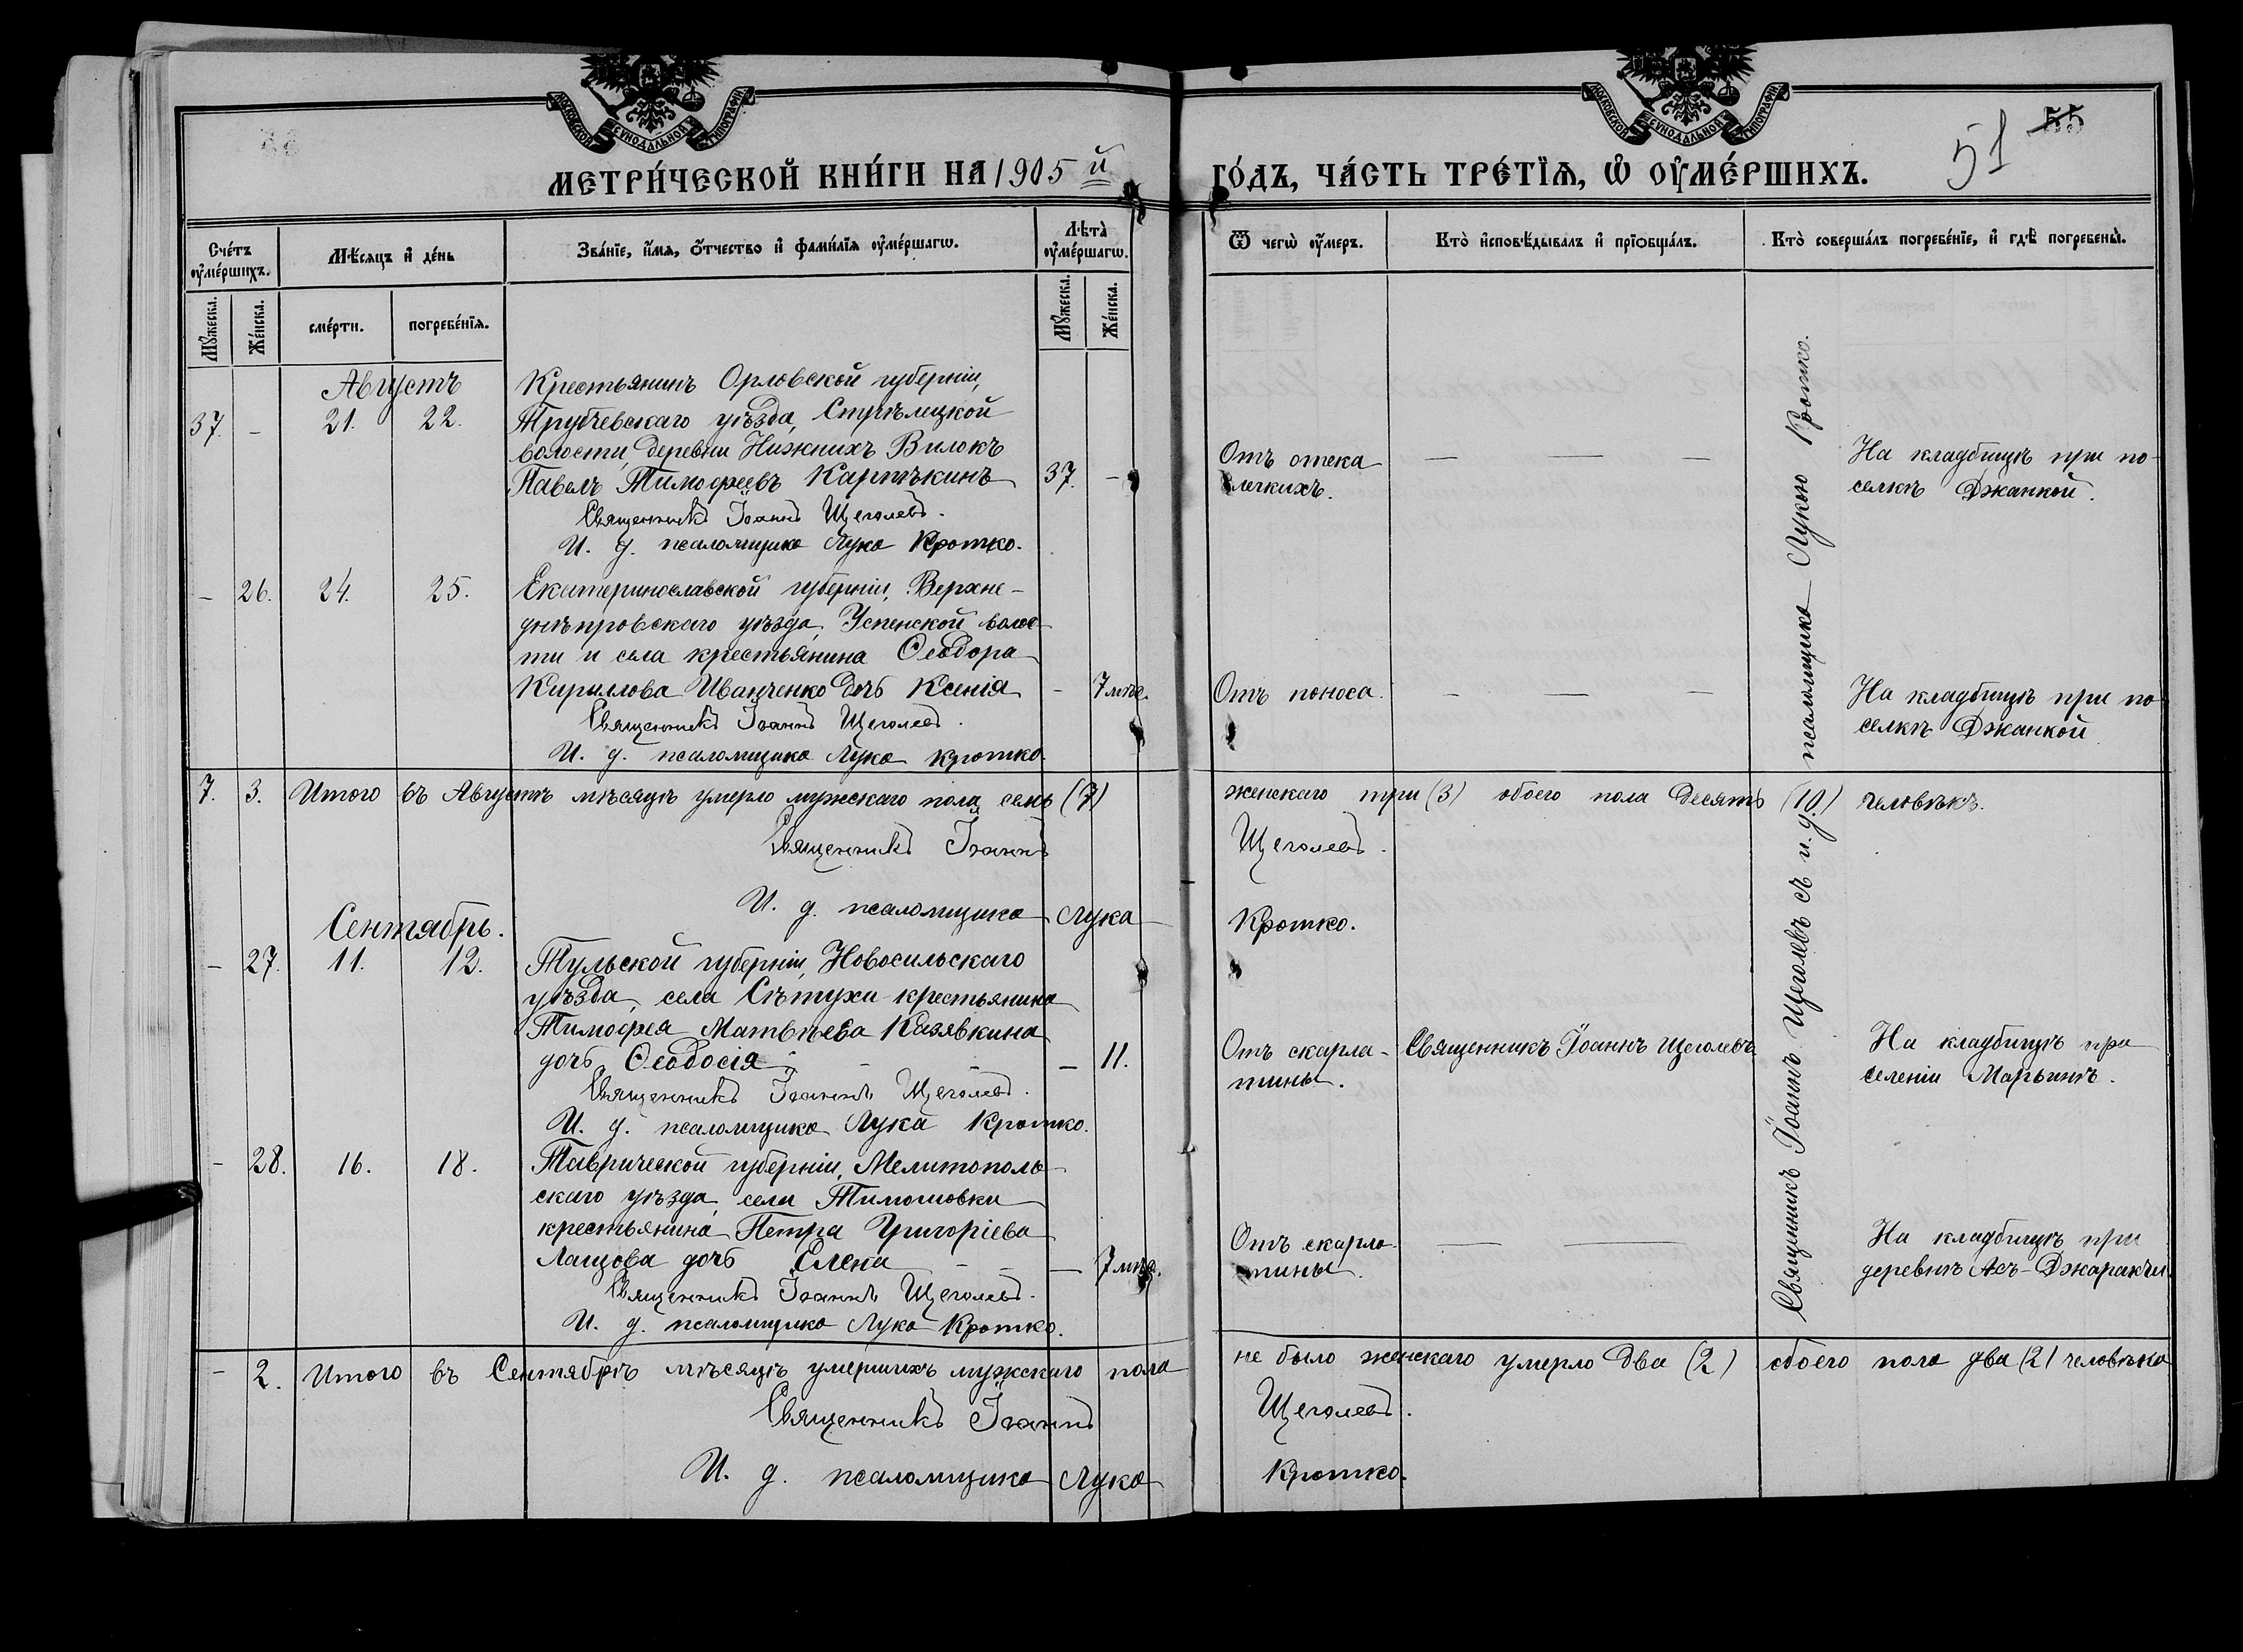 МОСКОВСКОЙ СѴНОДАЛЬНОЙ ТИПОГРАФІИ
МОСКОВСКОЙ СѴНОДАЛЬНОЙ ТИПОГРАФІИ
55
51
МЕТРИ́ЧЕСКОЙ КНИ́ГИ НА 1905й ГО́ДЪ, ЧА́СТЬ ТРЕ́ТЇѦ, Ѡ҆ ОУ҆МЕ́РШИХЪ.
Сче́тъ оу҆ме́ршихъ.
Мꙋ́жеска.
Же́нска.
Мѣ́сяцъ и҆ де́нь
сме́рти.
погребе́нїѧ.
Зва́нїе, и҆́мѧ, ѻ҆́тчество и҆ фами́лїѧ оу҆ме́ршагѡ.
Лѣ́та̀ оу҆ме́ршагѡ.
Мꙋ́жеска.
Же́нска.
Ѿ чегѡ̀ оу҆́меръ.
Кто̀ и҆сповѣ́дывалъ и҆ прїѡбща́лъ.
Кто̀ соверша́лъ погребе́нїе, и҆ гдѣ̀ погребены̀.
Августъ
37. - 21. 22.
Крестьянинъ Орловской губерніи,
Трубчевскаго уѣзда, Стрѣлецкой
волости, деревни Нижнихъ Вилокъ
Павелъ Тимофеевъ Картѣкинъ 37. -
Священникъ Іоаннъ Щеголевъ.
И. д. псаломщика Лука Кротко.
Отъ отека
легкихъ.
— — —
На кладбищѣ при по-
селкѣ Джанкой.
- 26. 24. 25.
Екатеринославской губерніи, Верхне-
днѣпровскаго уѣзда, Успенской волос-
ти и села крестьянина Ѳеодора
Кириллова Иванченко дочь Ксенія - 7 мѣс.
Священникъ Іоаннъ Щеголевъ.
И. д. псаломщика Лука Кротко.
Отъ поноса.
— — —
На кладбищѣ при по-
селкѣ Джанкой
7. 3. Итого въ Августѣ мѣсяцѣ умерло мужскаго пола семь (7) женскаго три (3) обоего пола десять (10) человѣкъ.
Священникъ Іоаннъ Щеголевъ.
И. д. псаломщика Лука Кротко.
Сентябрь.
- 27. 11. 12.
Тульской губерніи, Новосильскаго
уѣзда, села Сѣтухи крестьянина
Тимофея Матвѣева Казявкина
дочь Ѳеодосія - - - - 11.
Священникъ Іоаннъ Щеголевъ.
И. д. псаломщика Лука Кротко.
Отъ скарла-
тины.
Священникъ Іоаннъ Щеголевъ.
На кладбищѣ при
селеніи Марьинѣ.
- 28. 16. 18.
Таврической губерніи, Мелитополь-
скаго уѣзда, села Тимошовки
крестьянина Петра Григоріева
Лащева дочь Елена - - - 7 мѣс.
Священникъ Іоаннъ Щеголевъ.
И. д. псаломщика Лука Кротко.
Отъ скарла-
тины.
— —
На кладбищѣ при
деревнѣ Ась-Джаракчи.
Священникъ Іоаннъ Щеголевъ съ и. д. псаломщика Лукою Кротко.
- 2. Итого въ Сентябрѣ мѣсяцѣ умершихъ мужскаго пола не было женскаго умерло два (2) обоего пола два (2) человѣка
Священникъ Іоаннъ Щеголевъ.
И. д. псаломщика Лука Кротко.